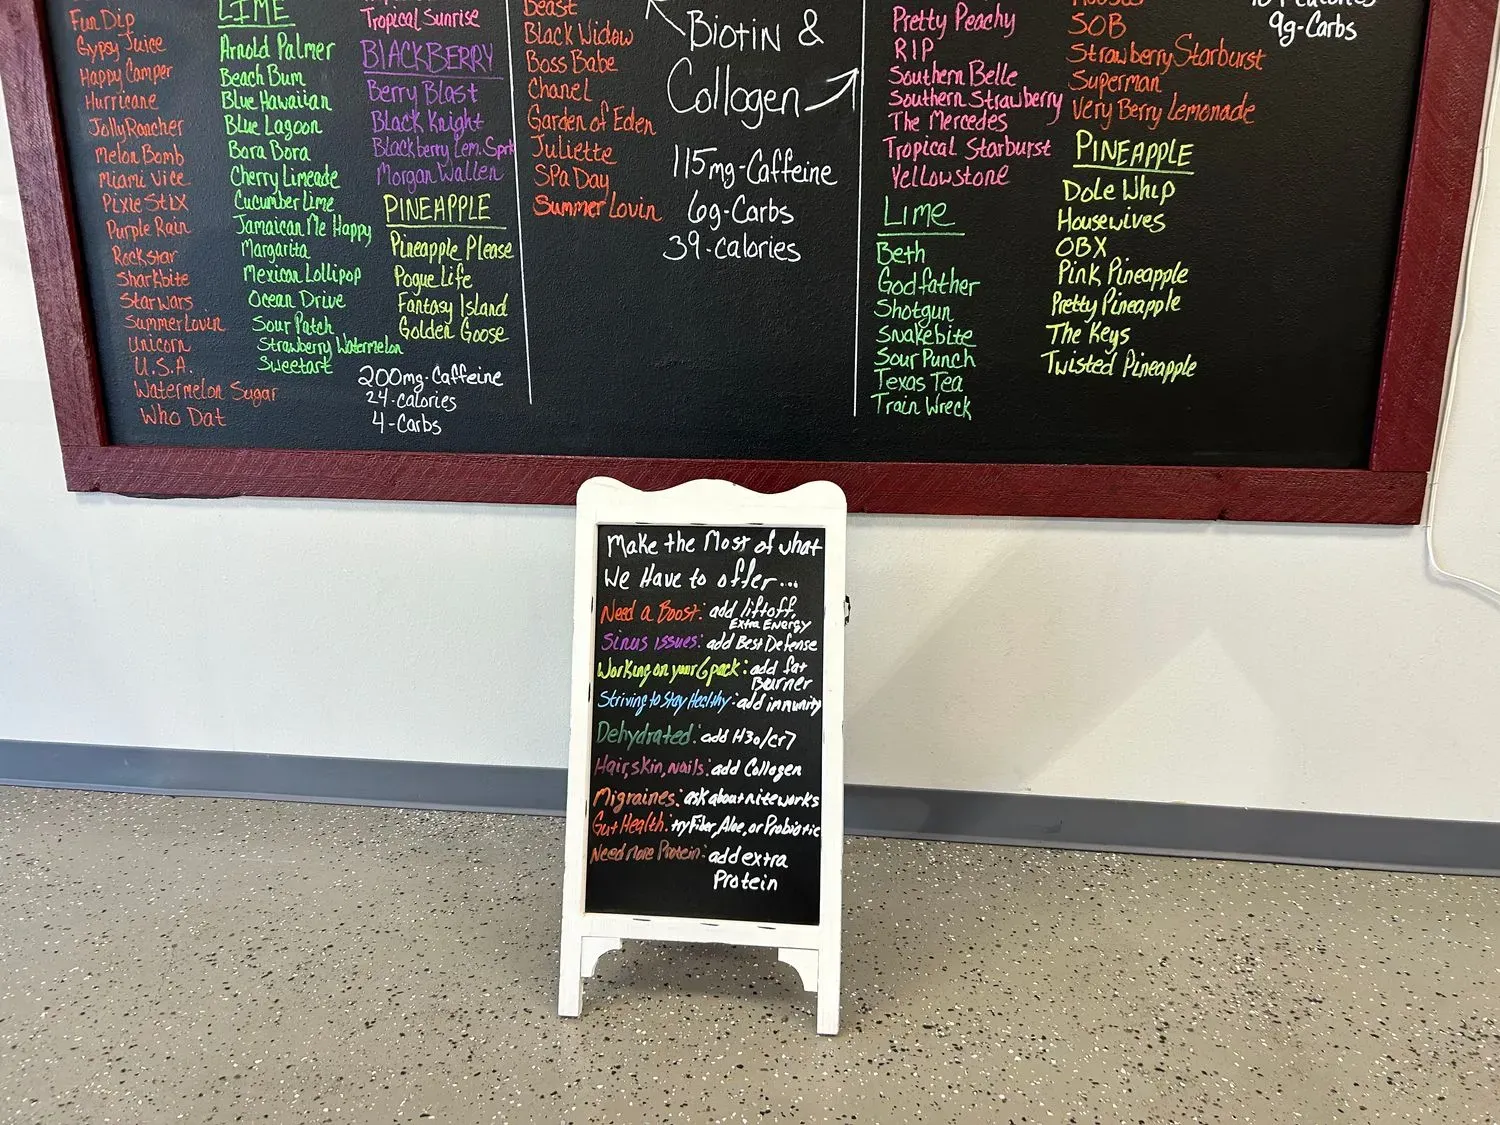 Fun Dip
Gypsy Juice
Happy Camper
Hurricane
Jolly Rancher
Melon Bomb
Miami Vice
Pixie Stix
Purple Rain
Rockstar
Sharkbite
Star Wars
Summer Lovin
Unicorn
U.S.A.
Watermelon Sugar
Who Dat
LIME
Arnold Palmer
Beach Bum
Blue Hawaiian
Blue Lagoon
Bora Bora
Cherry Limeade
Cucumber Lime
Jamaican Me Happy
Margarita
Mexican Lollipop
Ocean Drive
Sour Patch
Strawberry Watermelon
Sweetart
Tropical Sunrise
BLACKBERRY
Berry Blast
Black Knight
Blackberry Lem. Sprt
Morgan Wallen
PINEAPPLE
Pineapple Please
Pogue Life
Fantasy Island
Golden Goose
200mg-Caffeine
24-calories
4-Carbs
Beast
Black Widow
Boss Babe
Chanel
Garden of Eden
Juliette
Spa Day
Summer Lovin
Biotin &
Collagen
115mg-Caffeine
6g-Carbs
39-calories
Pretty Peachy
RIP
Southern Belle
Southern Strawberry
The Mercedes
Tropical Starburst
Yellowstone
LIME
Beth
Godfather
Shotgun
Snakebite
Sour Punch
Texas Tea
Train Wreck
SOB
Strawberry Starburst
Superman
Very Berry Lemonade
PINEAPPLE
Dole Whip
Housewives
OBX
Pink Pineapple
Pretty Pineapple
The Keys
Twisted Pineapple
9g-Carbs
Make the Most of what
We Have to offer...
Need a Boost: add liftoff,
Extra Energy
Sinus issues: add Best Defense
Working on your 6 pack: add fat
Burner
Striving to Stay Healthy: add immunity
Dehydrated: add H3o/cr7
Hair, skin, nails: add Collagen
Migraines: ask about niteworks
Gut Health: try Fiber, Aloe, or Probiotic
Need more Protein: add extra
Protein